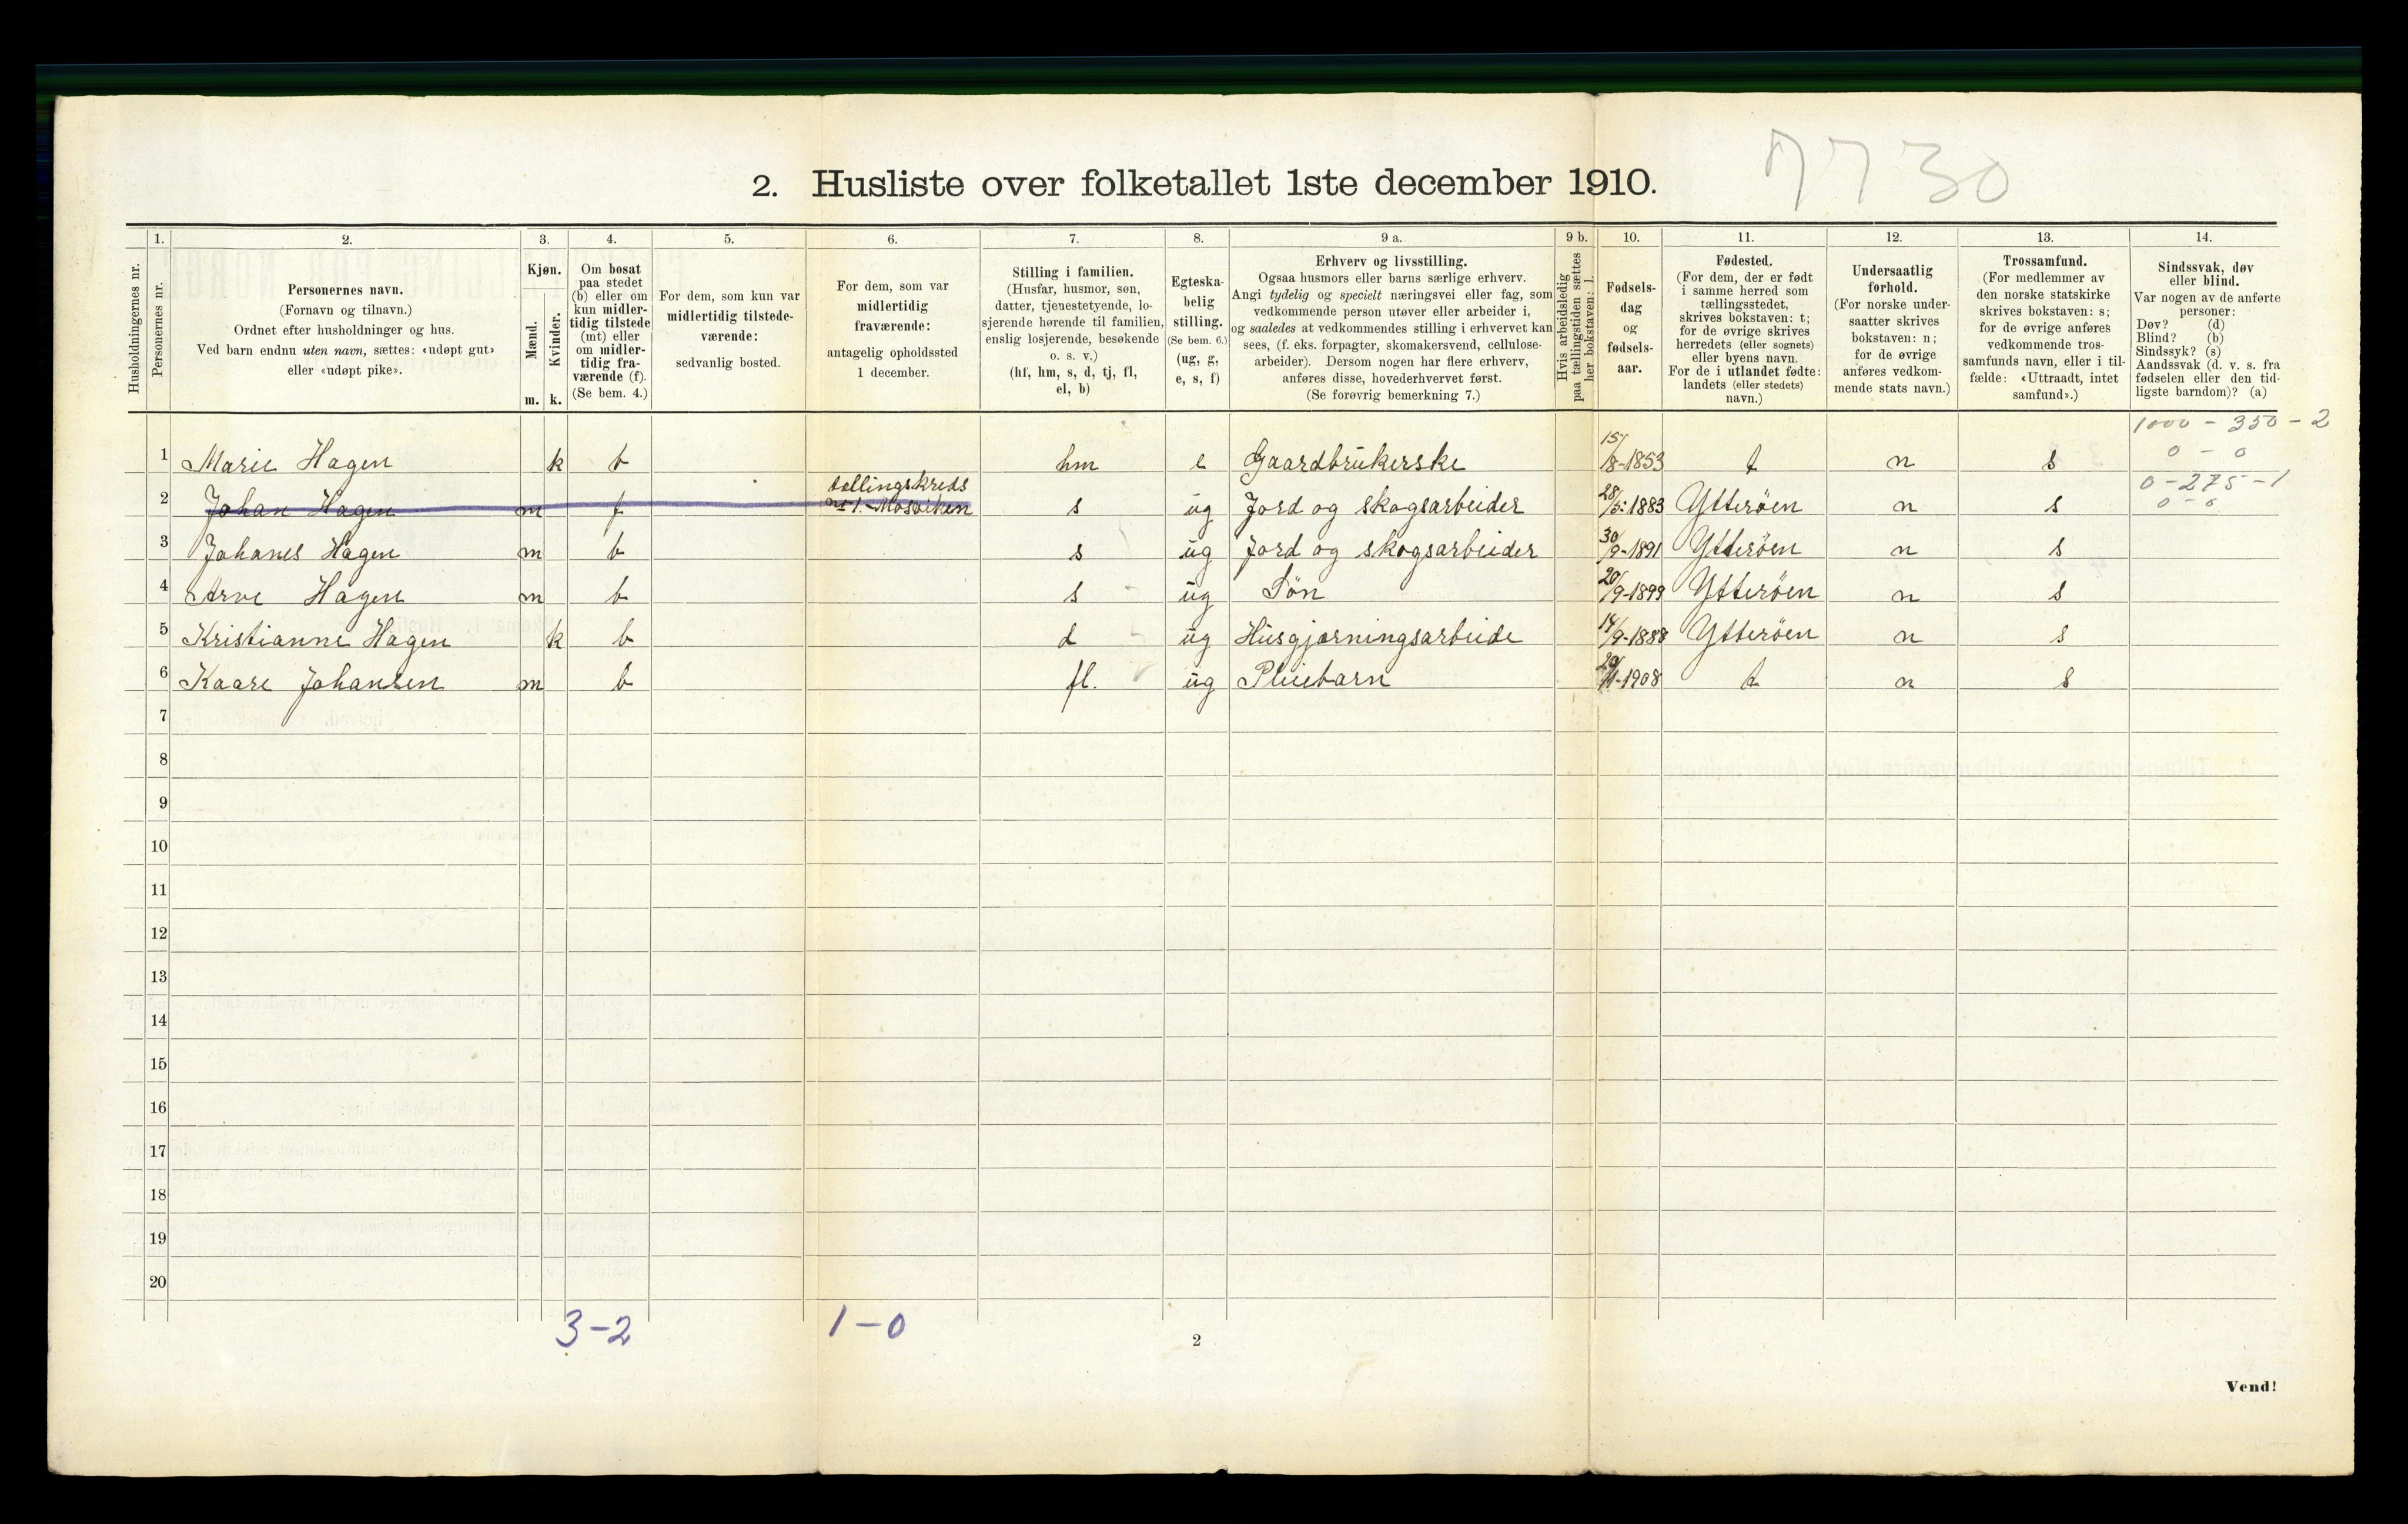 7730
2. Husliste over folketallet 1ste december 1910.
Husholdningernes nr.
1.
Personernes nr.
2.
Personernes navn.
(Fornavn og tilnavn.)
Ordnet efter husholdninger og hus.
Ved barn endnu uten navn, sættes: «udøpt gut»
eller «udøpt pike».
3.
Kjøn.
Mænd.
Kvinder.
m. k.
4.
Om bosat
paa stedet
(b) eller om
kun midler-
tidig tilstede
(mt) eller
om midler-
tidig fra-
værende (f).
(Se bem. 4.)
5.
For dem, som kun var
midlertidig tilstede-
værende:
sedvanlig bosted.
6.
For dem, som var
midlertidig
fraværende:
antagelig opholdssted
1 december.
7.
Stilling i familien.
(Husfar, husmor, søn,
datter, tjenestetyende, lo-
sjerende hørende til familien,
enslig losjerende, besøkende
o. s. v.)
(hf, hm, s, d, tj, fl,
el, b)
8.
Egteska-
belig
stilling.
(Se bem. 6.)
(ug, g,
e, s, f)
9 a.
Erhverv og livsstilling.
Ogsaa husmors eller barns særlige erhverv.
Angi tydelig og specielt næringsvei eller fag, som
vedkommende person utøver eller arbeider i,
og saaledes at vedkommendes stilling i erhvervet kan
sees, (f. eks. forpagter, skomakersvend, cellulose-
arbeider). Dersom nogen har flere erhverv,
anføres disse, hovederhvervet først.
(Se forøvrig bemerkning 7.)
9 b.
Hvis arbeidsledig
paa tællingstiden sættes
her bokstaven: l.
10.
Fødsels-
dag
og
fødsels-
aar.
11.
Fødested.
(For dem, der er født
i samme herred som
tællingsstedet,
skrives bokstaven: t;
for de øvrige skrives
herredets (eller sognets)
eller byens navn.
For de i utlandet fødte:
landets (eller stedets)
navn.)
12.
Undersaatlig
forhold.
(For norske under-
saatter skrives
bokstaven: n;
for de øvrige
anføres vedkom-
mende stats navn.)
13.
Trossamfund.
(For medlemmer av
den norske statskirke
skrives bokstaven: s;
for de øvrige anføres
vedkommende tros-
samfunds navn, eller i til-
fælde: «Uttraadt, intet
samfund».)
14.
Sindssvak, døv
eller blind.
Var nogen av de anførte
personer:
Døv? (d)
Blind? (b)
Sindssyk? (s)
Aandssvak (d. v. s. fra
fødselen eller den tid-
ligste barndom)? (a)
1000 - 350 - 2
1 Marie Hagen k b hm e Gaardbrukerske 15/8-1853 t n s 0 - 0
2 Johan Hagen m f tellingskreds Mosviken s ug Jord og skogsarbeider 28/5-1883 Ytterøen n s 0-275-1
0-0
3 Johanes Hagen m b s ug Jord og skogsarbeider 30/9-1891 Ytterøen n s
4 Arve Hagen m b s ug Søn 20/9-1899 Ytterøen n s
5 Kristianne Hagen k b d ug Husgjørningsarbeide 14/9-1888 Ytterøen n s
6 Kaare Johansen m b fl. ug Pleiebarn -1908 t n s
7
8
9
10
11
12
13
14
15
16
17
18
19
20
3-2 1-0
2
Vend!